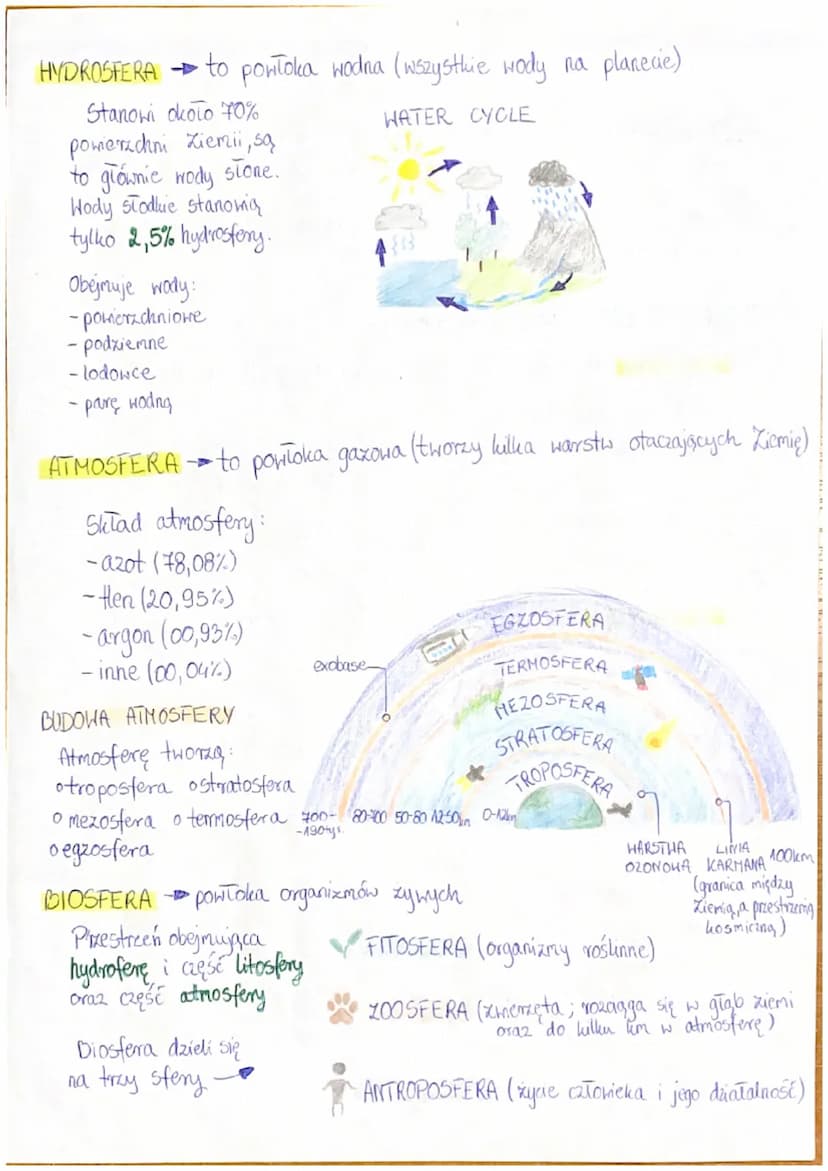 HYDROSFERA → to powłoka wodna (wszystkie wody na planecie)
Stanowi około 70%
powierzchni Ziemii, są
to głównie wody słone.
Wody słodkie stanowią
tylko 2,5% hydrosfery.
WATER CYCLE
Obejmuje wody:
- powierzchniowe
- podziemne
- lodowce
- parę wodną
ATMOSFERA → to powłoka gazowa (tworzy kilka warstw otaczających Ziemię)
Skład atmosfery:
- azot (78,08%)
- tlen (20,95%)
- argon (00,93%)
- inne (00,04%)
BUDOWA ATMOSFERY
Atmosferę tworzą:
o troposfera o stratosfera
o mezosfera o termosfera
o egzosfera
EGZOSFERA
exobase
TERMOSFERA
MEZOSFERA
STRATOSFERA
TROPOSFERA
700- 80-700 50-80 12-50km 0-12km
-190tyś.
WARSTWA
OZONOWA
LINIA
KARMANA 100km
(granica między
Ziemią, a przestrzenią
kosmiczną)
BIOSFERA → powłoka organizmów żywych
Przestrzeń obejmująca
hydroferę i część litosfery
oraz część atmosfery
Biosfera dzieli się
na trzy sfery →
FITOSFERA (organizmy roślinne)
ZOOSFERA (zwierzęta; rozciąga się w głąb ziemi
oraz do kilku km w atmosferę)
ANTROPOSFERA (życie człowieka i jego działalność)